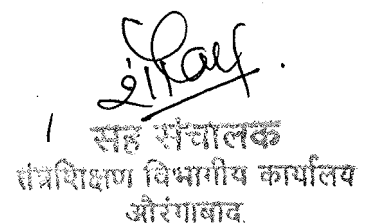 सह संचालक
तंत्रशिक्षण विभागीय कार्यालय
औरंगाबाद